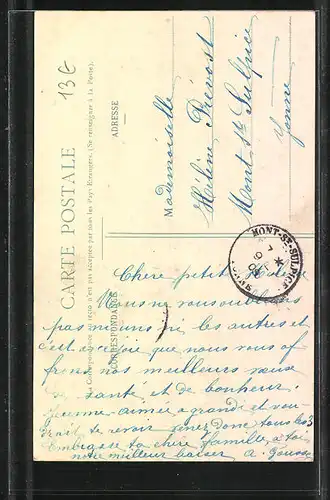 13€
CARTE POSTALE
La Correspondance au recto n'est pas acceptée par tous les Pays Étrangers. (Se renseigner à la Poste).
CORRESPONDANCE
ADRESSE
Mademoiselle
Hélène Prévost
Mont St Sulpice
Yonne
MONT-ST-SULPICE
Chère petite
Nous ne vous oublions
pas moins ni les autres et
c'est avec joie que nous vous of
frons nos meilleurs vœux
de santé et de bonheur.
Jeanne-Aimée a grandi et vou
drait te revoir venez donc tous les 3
Embrasse ta chère famille, à toi
notre meilleur baiser a.